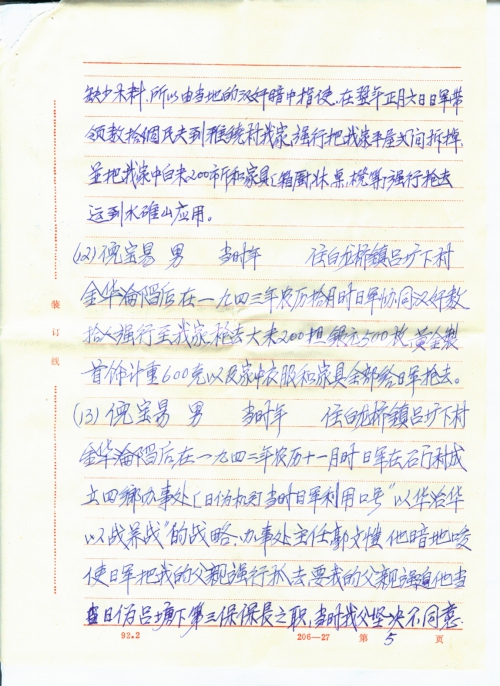 缺少木料,所以由当地的汉奸暗中指使,在翌年正月六日日军带
领数拾個民夫到 我家,强行把我家平屋 间拆掉,
並把我家中白米200市斤和家具(箱厨床桌,櫈等)强行抢去
运到水碓山应用。
(12)倪宝易 男 当时年 住白龙桥鎮吕圹下村
金华淪陷后在一九四三年农历拾月时日军协同汉奸数
拾人强行至我家,抢去大米200担,銀元500枚,黄金製
首饰计重600克以及家中衣服和家具全部给日军抢去。
(13)倪宝易 男 当时年 住白龙桥鎮吕圹下村
金华淪陷后在一九四二年农历十一月时日军在石行村成
立四鄉办事处(日伪机关)当时日军利用口号"以华治华
以战养战"的战略、办事处主任郭文 他暗地唆
使日军把我的父親强行抓去要我的父親强迫他当
当日伪吕塘下第三保保長之职,当时我父坚决不同意.
装订线
93.2 206—27 第5页